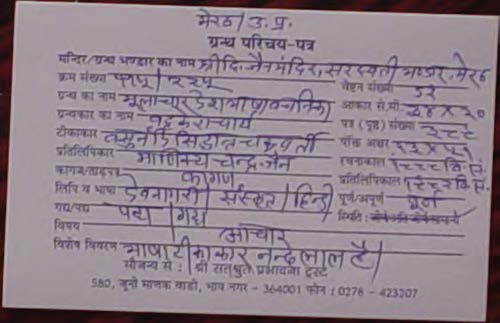 मेरठ/उ.प्र.
ग्रन्थ परिचय-पत्र
मन्दिर/ग्रन्थ भण्डार का नाम श्री दि. जैन मंदिर, सरस्वती भण्डार, मेरठ
क्रम संख्या वेष्टन संख्या ५२
ग्रन्थ का नाम मूलाचार देशभाषा वचनिका आकार से.मी. २४×२०
ग्रन्थकार का नाम वट्टकेराचार्य पत्र (पृष्ठ) संख्या ३८८
टीकाकार वसुनंदि सिद्धान्त चक्रवर्ती पंक्ति अक्षर
प्रतिलिपिकार माणिक्य चन्द्र जैन रचनाकाल १८८८ वि.सं.
कागज/ताड़पत्र कागज प्रतिलिपिकाल वि.सं.
लिपि व भाषा देवनागरी/संस्कृत/हिन्दी पूर्ण/अपूर्ण पूर्ण
गद्य/पद्य पद्य/गद्य स्थिति :
विषय आचार
विशेष विवरण भाषा टीकाकार नन्दलाल है/
सौजन्य से : श्री सत्श्रुत प्रभावना ट्रस्ट
580, जुनी माणक वाडी, भाव नगर - 364001 फोन : 0278 - 423207